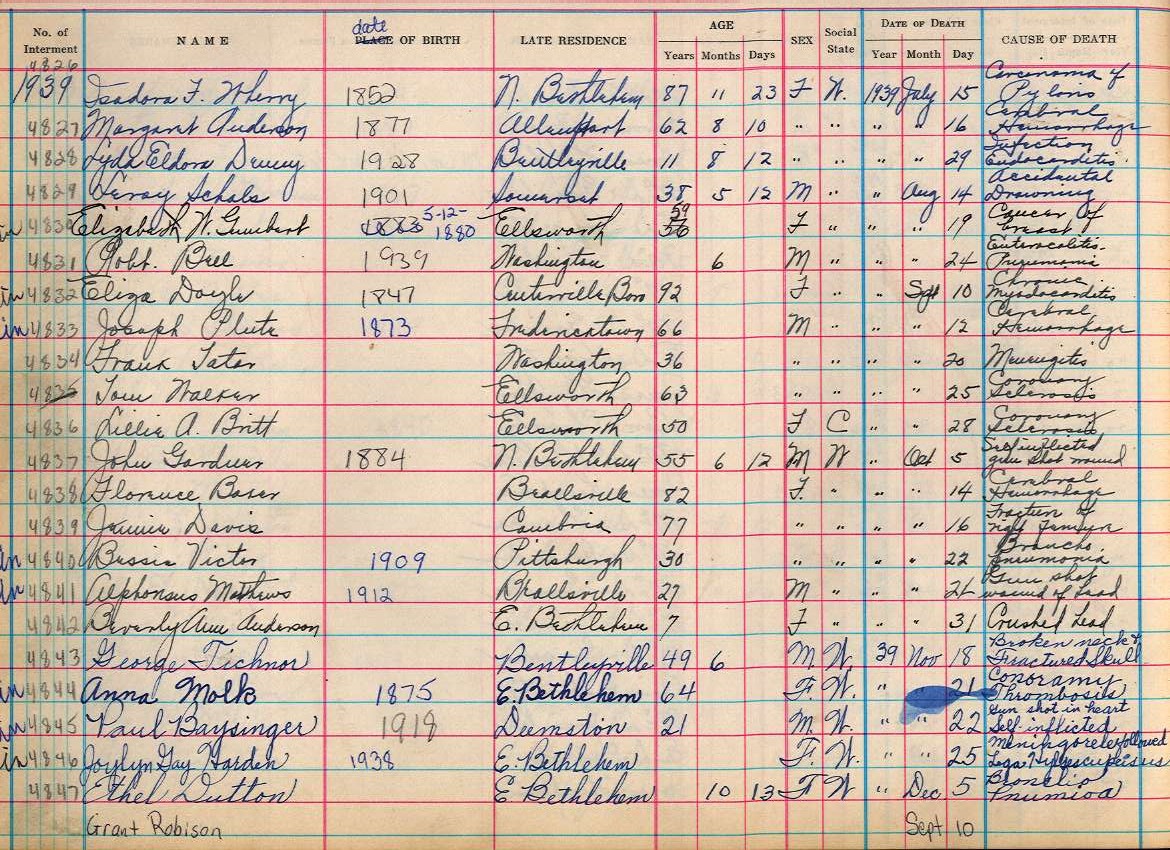 No. of Interment NAME date PLACE OF BIRTH LATE RESIDENCE AGE Years Months Days SEX Social State DATE OF DEATH Year Month Day CAUSE OF DEATH
4826
1939 Isadora F. Wherry 1852 N. Bethlehem 87 11 23 F W. 1939 July 15 Carcenoma of Pyloris
4827 Margaret Anderson 1877 Allenport 62 8 10 " " " " 16 Cerebral Hemorrhage
4828 Lyda Eldora Dewey 1928 Bentleyville 11 8 12 " " " " 29 Infection Endocarditis
4829 Leroy Schals 1901 Somerset 38 5 12 M " " Aug 14 Accidental Drowning
in 4830 Elizabeth W. Gumbert 1883 5-12-1880 Ellsworth 59 56 F " " " 19 Cancer of breast
4831 Robt. Bell 1939 Washington 6 M " " " 24 Enterocolitis. Pneumonia
in 4832 Eliza Doyle 1847 Centerville Boro 92 F " " Sept 10 Chronic Myodocarditis
in 4833 Joseph Plute 1873 Fredericktown 66 M " " " 12 Cerebral Hemorrhage
4834 Frank Tatar Washington 36 " " " " 20 Menengitis
4835 Tom Walker Ellsworth 63 " " " " 25 Coronary Sclerosis
4836 Lillie A. Britt Ellsworth 50 F C " " 28 Coronary Sclerosis
4837 John Gardner 1884 N. Bethlehem 55 6 12 M W " Oct 5 Self inflicted gun shot wound
4838 Florence Baker Beallsville 82 F. " " " 14 Cerebral Hemorrhage
4839 Jennie Davis Cambria 77 " " " " 16 Fraction of right
in 4840 Bessie Victor 1909 Pittsburgh 30 " " " " 22 Broncho. pneumonia
in 4841 Alphonsus Mathews 1912 Beallsville 27 M " " " Gun shot wound of head
4842 Beverly Ann Anderson E. Bethlehem 7 F " " " 31 Crushed head
4843 George Tichnor Bentleyville 49 6 M. W. 39 Nov 18 Broken neck & Fractured Skull
in 4844 Anna Molk 1875 E. Bethlehem 64 F. W. " 21 Conoramy Thrombosus
in 4845 Paul Baysinger 1918 Deemston 21 M. W. " " 22 Gun shot in heart Self-inflicted
in 4846 Joylyn Gay Harden 1938 E. Bethlehem F. W. " " 25 followed
4847 Ethel Dutton E Bethlehem 10 13 F W " Dec 5
Grant Robison Sept 10